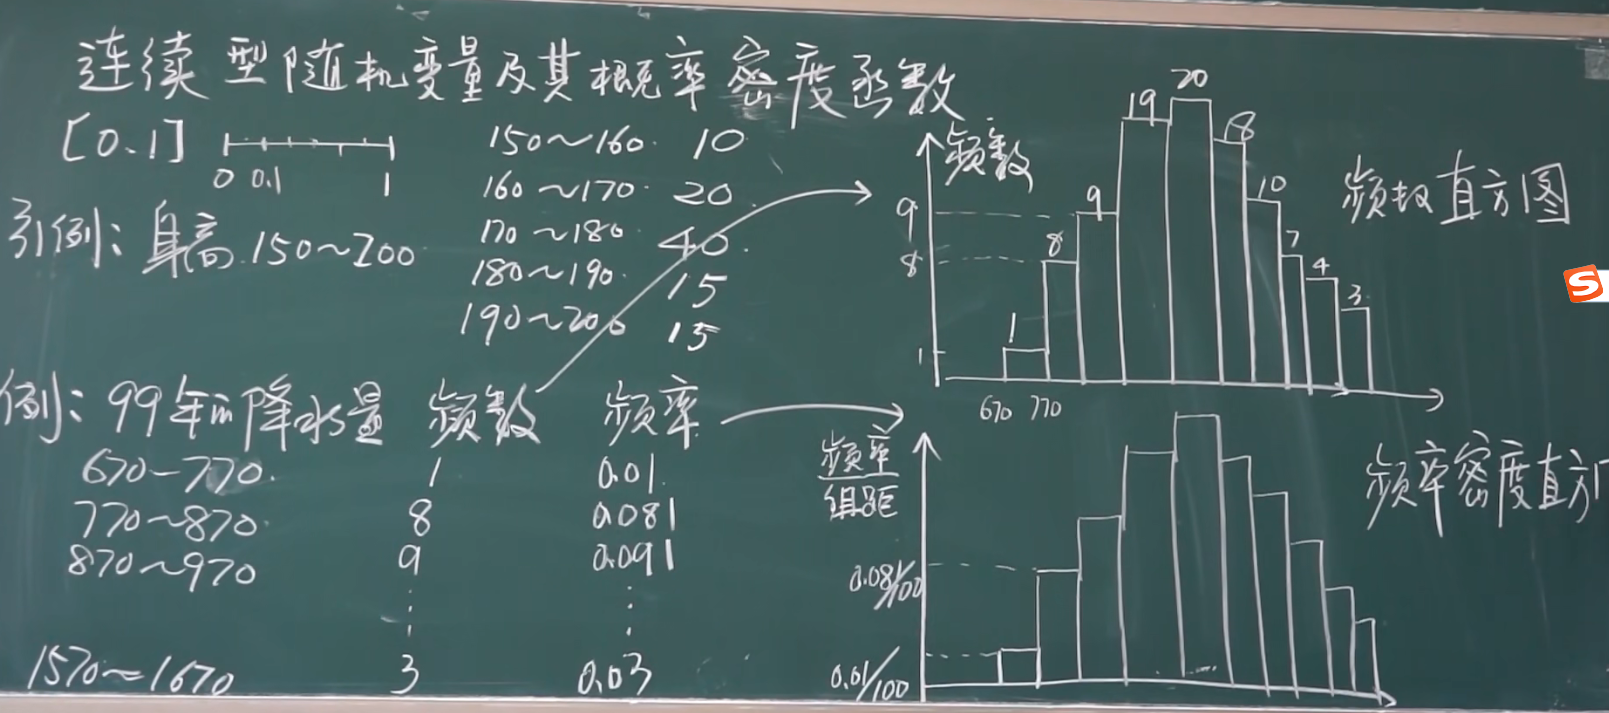 连续型随机变量及其概率密度函数
[0.1]
0 0.1 1
引例：身高 150~200
150~160 10
160~170 20
170~180 40
180~190 15
190~200 15
例：99年的降水量 频数 频率
670-770 1 0.01
770~870 8 0.081
870~970 9 0.091
⋮ ⋮
1570~1670 3 0.03
频数
9
8
1
1 8 9 19 20 18 10 7 4 3
670 770
频数直方图
频率
组距
0.081/100
0.01/100
频率密度直方
S